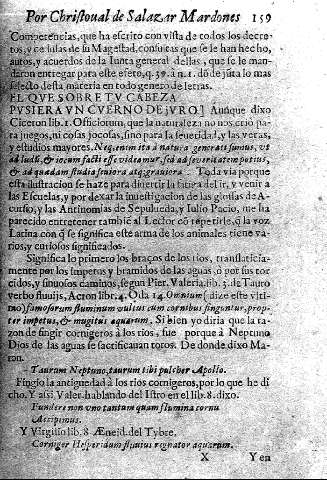 Por Christoual de Salazar Mardones 159
Competencias, que ha escrito con vista de todos los decre-
tos, y cedulas de su Magestad, consultas que se le han hecho,
autos, y acuerdos de la Iunta general dellas, que se le man-
daron entregar para este efeto, q. 59. à n. 1. dō de jũta lo mas
selecto desta materia en todo genero de letras.
EL QVE SOBRE TV CABEZA
PVSIERA VN CVERNO DE IVRO.] Aunque dixo
Ciceron lib. 1. Officiorum, que la naturaleza no nos crió pa-
ra juegos, ni cosas jocosas, sino para la seueridad, y las veras,
y estudios mayores. Neq; enim ita à natura generati sumus, vt
ad ludũ, & iocum facti esse videamur, sed ad seueritatem potius,
& ad quædam studia seuiora atq; grauiora. Toda via porque
esta ilustracion se haze para diuertir la fatiga del ir, y venir à
las Escuelas, y por dexar la inuestigacion de las glosas de A-
cursio, y las Antinomias de Sepulueda, y Iulio Pacio, me ha
parecido entretener tambiē al Lector cō repetirle, q̃ la voz
Latina con q̃ se significa este arma de los animales tiene va-
rios, y curiosos significados.
Significa lo primero los braços de los rios, translaticia-
mente por los impetus y bramidos de las aguas, ò por sus tor-
cidos, y sinuosos caminos, segun Pier. Valeria. lib. 3. de Tauro
verbo fluuijs, Acron lib. 4. Oda 14. Omnium (dize este vlti-
mo) famosorum fluminum vultus cum cornibus finguntur, prop-
ter impetus, & mugitus aquarum. Si bien yo diria que la ra-
zon de fingir cornigeros à los rios, fue porque à Neptuno
Dios de las aguas se sacrificauan toros. De donde dixo Ma-
ron.
Taurum Neptuno, taurum tibi pulcher Apollo.
Fingiolo la antiguedad à los rios cornigeros, por lo que he di-
cho. Y assi Valer hablando del Istro en el lib. 8. dixo.
Fundere non vno tantum quam flumina cornu
Accipimus.
Y Virgilio lib. 8 Æneid. del Tybre.
Corniger Hesperidum fluuius regnator aquarum.
X Y en